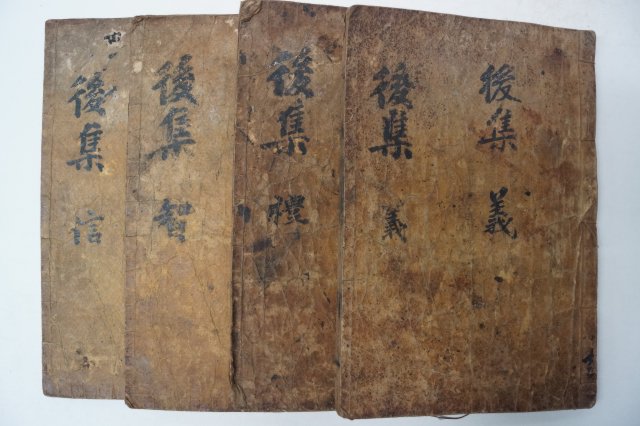 後集 義
後集 義
後集 禮
後集 智
後集 信